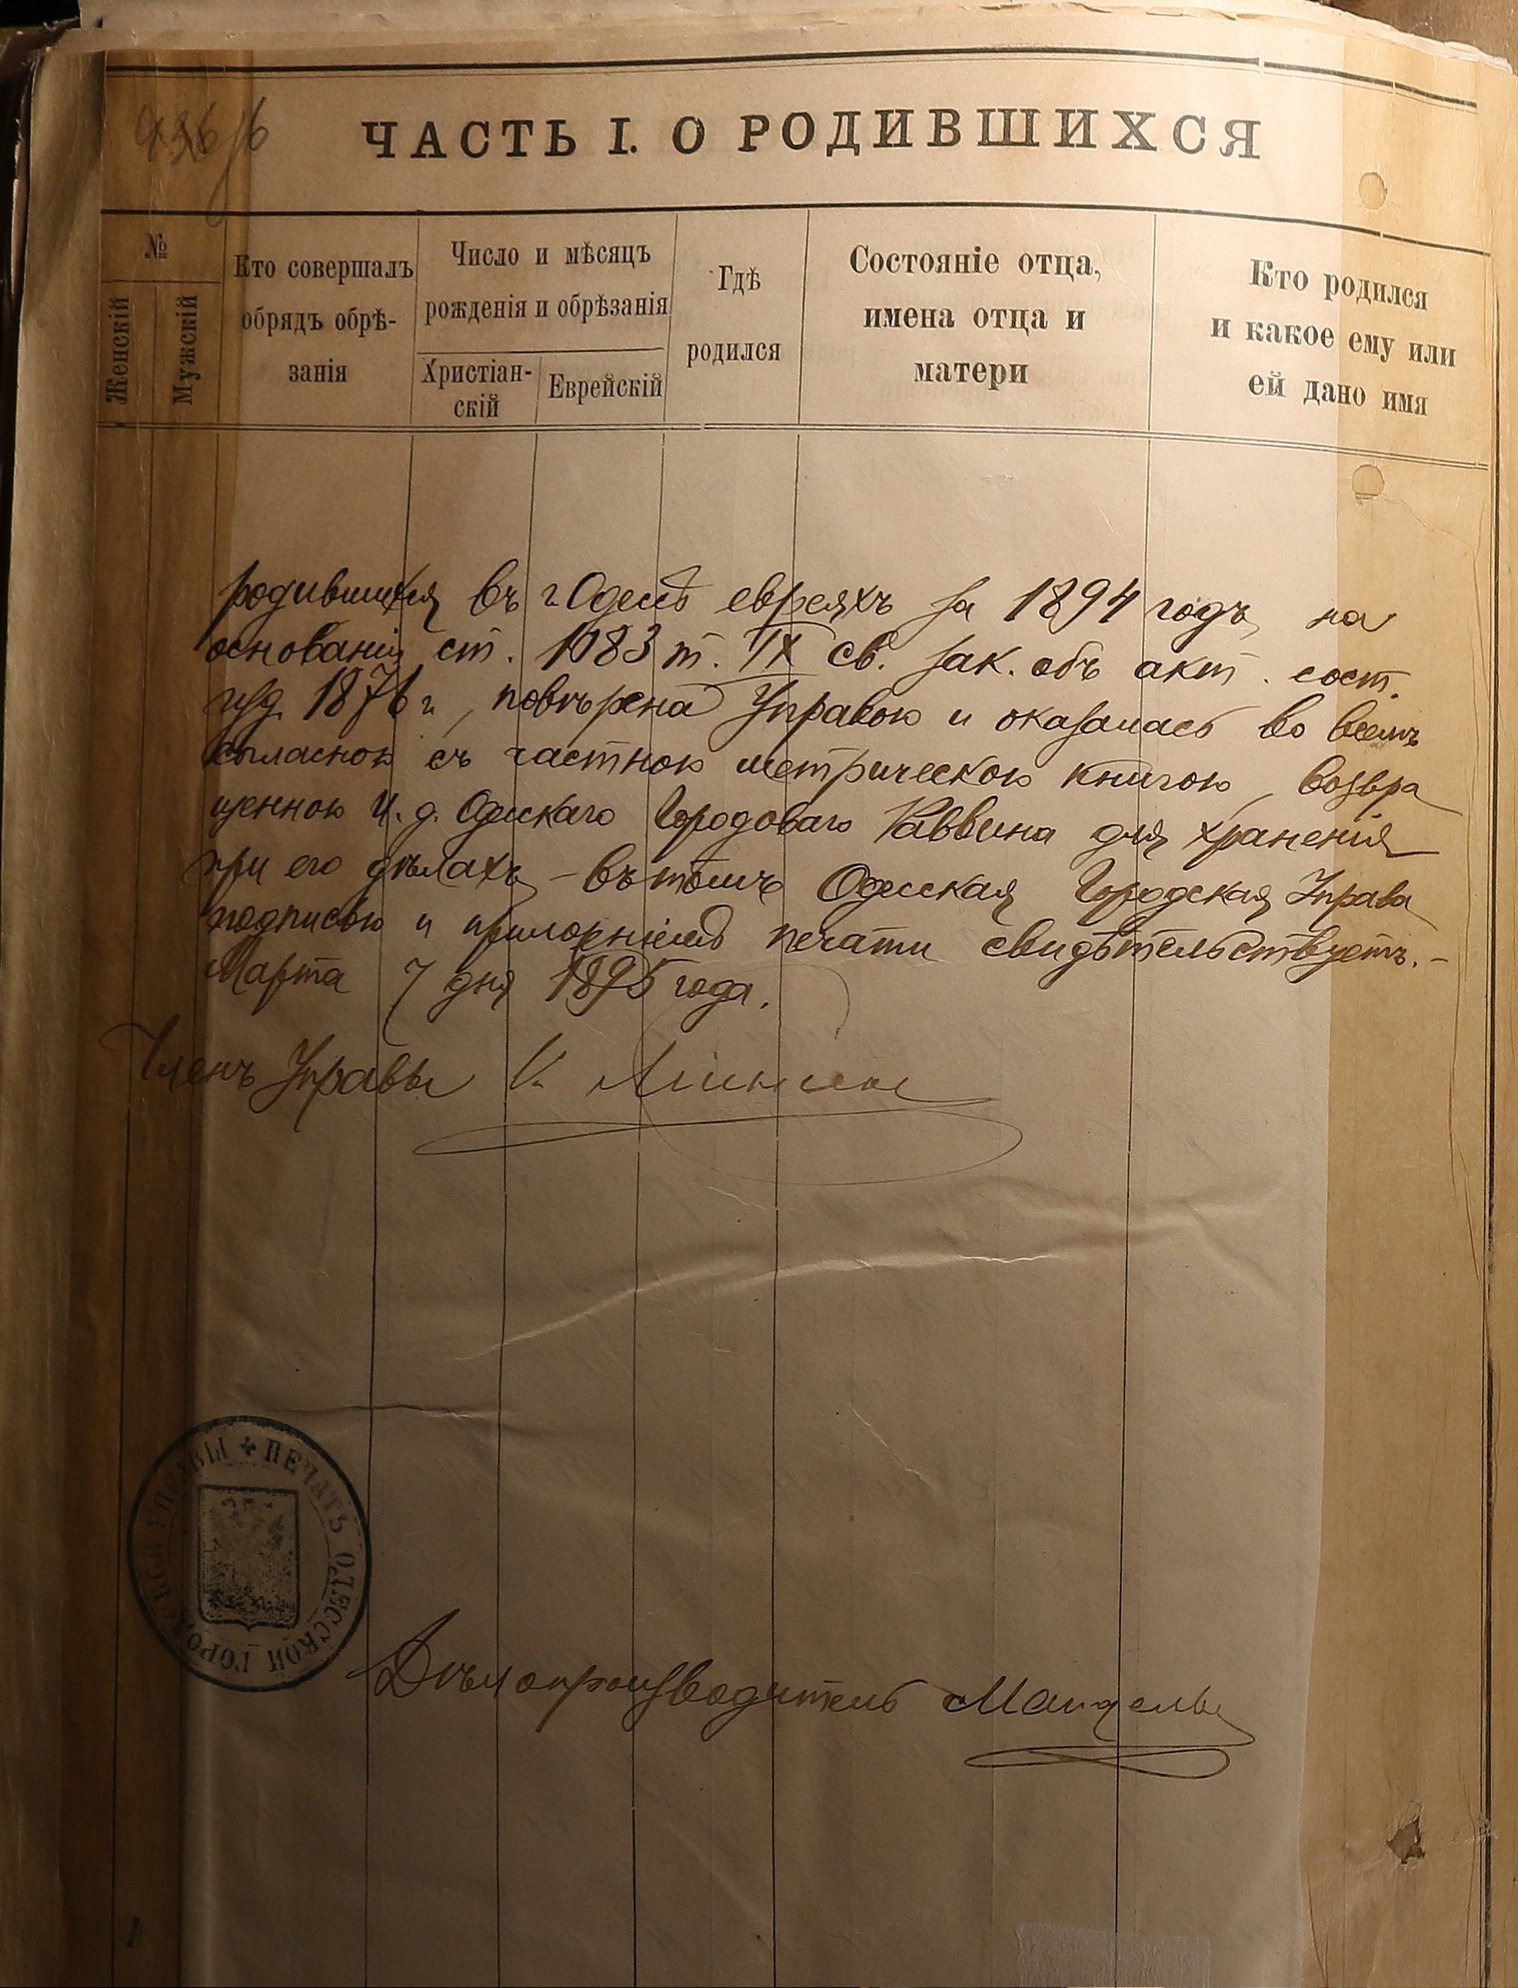 ЧАСТЬ I. О РОДИВШИХСЯ
№
Женскій
Мужскій
Кто совершалъ
обрядъ обрѣ-
занія
Число и мѣсяцъ
рожденія и обрѣзанія
Христіан-
скій
Еврейскій
Гдѣ
родился
Состояніе отца,
имена отца и
матери
Кто родился
и какое ему или
ей дано имя
родившихся въ г. Одессѣ евреяхъ за 1894 годъ, на
основаніи ст. 1083 т. IX св. зак. объ акт. сост.
изд. 1876 г., повѣрена Управою и оказалась во всемъ
согласною съ частною метрическою книгою, возвра
щенною И. д. Одесскаго Городоваго Раввина для хранения
при его дѣлахъ, – въ томъ Одесская Городская Управа
подписью и приложеніемъ печати свидѣтельствуетъ. –
Марта 7 дня 1895 года.
Членъ Управы
ПЕЧАТЬ ОДЕССКОЙ ГОРОДСКОЙ УПРАВЫ
Дѣлопроизводитель